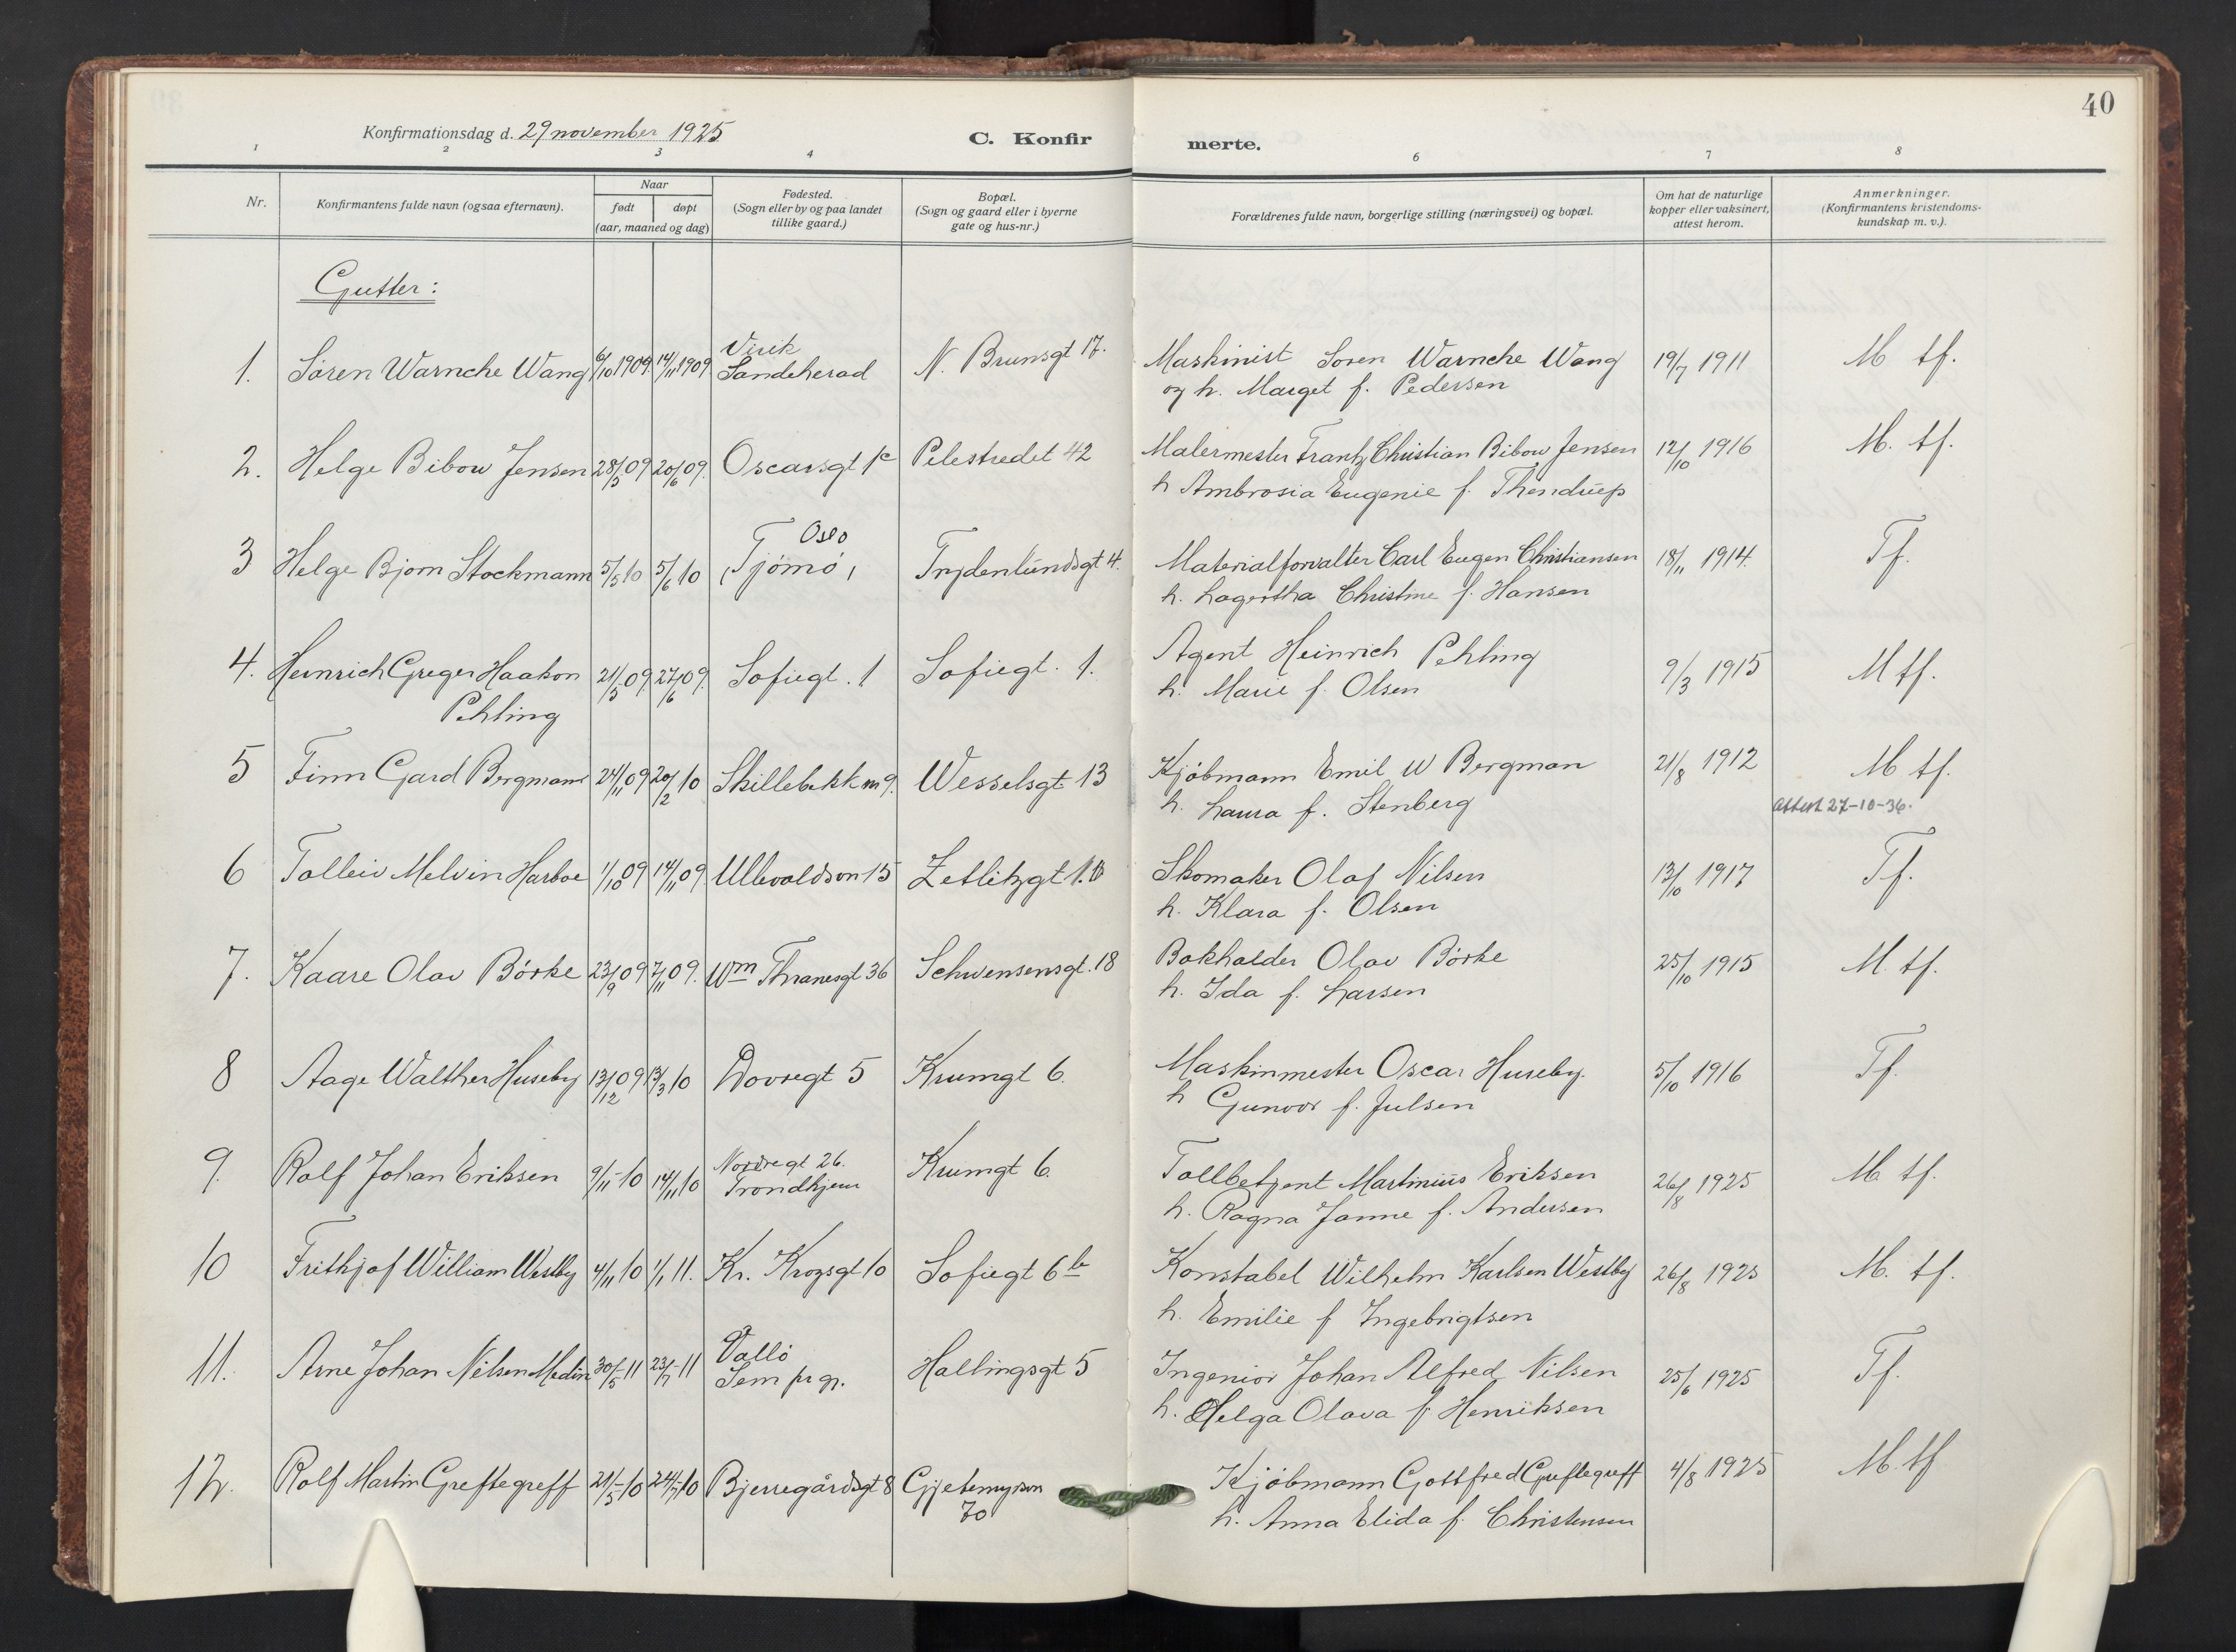 40
Konfirmationsdag d. 29 november 1925
C. Konfirmerte.
1 2 3 4 6 7 8
Nr.
Konfirmantens fulde navn (ogsaa efternavn).
Naar
født døpt
(aar, maaned og dag)
Fødested.
(Sogn eller by og paa landet
tillike gaard.)
Bopæl.
(Sogn og gaard eller i byerne
gate og hus-nr.)
Forældrenes fulde navn, borgerlige stilling (næringsvei) og bopæl.
Om hat de naturlige
kopper eller vaksinert,
attest herom.
Anmerkninger.
(Konfirmantens kristendoms-
kundskap m. v.).
Gutter:
1. Søren Warncke Wang 6/10 1909. 14/11 1909. Virik Sandeherad N. Brunsgt 17. Maskinist Soren Warncke Wang 19/7 1911 M tf.
og h. Marget f. Pedersen
2. Helge Bibow Jensen 28/5 09 20/6 09. Oscarsgt 1c Pilestredet 42 Malermester Frantz Christian Bibow Jensen 12/10 1916 M. tf.
h Ambrosia Eugenie f. Thendrup
3 Helge Bjorn Stockmann 5/5 10 5/6 10 Oslo (Tjømø) Frydenlundsgt 4. Materialforvalter Carl Eugen Christiansen 18/11 1914. Tf.
h. Lagertha Christine f. Hansen
4. Heinrich Greger Haakon 21/5 09 27/6 09. Sofiegt. 1 Sofiegt. 1. Agent Heinrich Pehling 9/3 1915 M tf.
Pehling h. Marie f. Olsen
5 Finn Gard Bergmann 24/11 09 20/2 10 Skillebekk nr 9. Wesselsgt 13 Kjøbmann Emil W Bergman 21/8 1912 M tf.
h. Laura f. Stenberg attest 27-10-36.
6 Tolleiv Melvin Harboe 1/10 09 14/11 09 Ullevoldsvn 15 Zetlitzgt 1. Skomaker Olaf Nilsen 13/10 1917 Tf.
h. Klara f. Olsen
7. Kaare Olav Børke 23/9 09 7/11 09. Wm Thranesgt 36 Schwensensgt. 18 Bokholder Olav Børke 25/10 1915 M. tf.
h. Ida f. Larsen
8 Aage Walther Huseby 13/12 09 13/3 10 Dovregt 5 Krumgt 6. Maskinmester Oscar Huseby. 5/10 1916 Tf.
h Gunvor f. Julsen
9. Rolf Johan Eriksen 9/11-10 14/11 10 Nordregt 26. Trondhjem Krumgt 6. Tollbetjent Martinius Eriksen 26/8 1925 M. tf.
h. Ragna Janne f. Andersen
10 Frithjof William Westby 4/11 10 1/1 11. Kr. Krogsgt 10 Sofiegt 6b Konstabel Wilhelm Karlsen Westby 26/8 1925 M. tf.
h. Emilie f Ingebrigtsen
11. Arne Johan Nilsen Medin 30/5-11 23/7-11 Vallö Sem pr gj. Hallingsgt 5 Ingeniør Johan Alfred Nilsen 25/6 1925 Tf.
h. Helga Olava f. Henriksen
12. Rolf Martin Greftegreff 21/5-10 24/7-10 Bjerregårdsgt 8 Gjetemyrsvn Kjøbmann Gottfred Greftegreff 4/8 1925 M. tf
70 h. Anna Elida f. Christensen